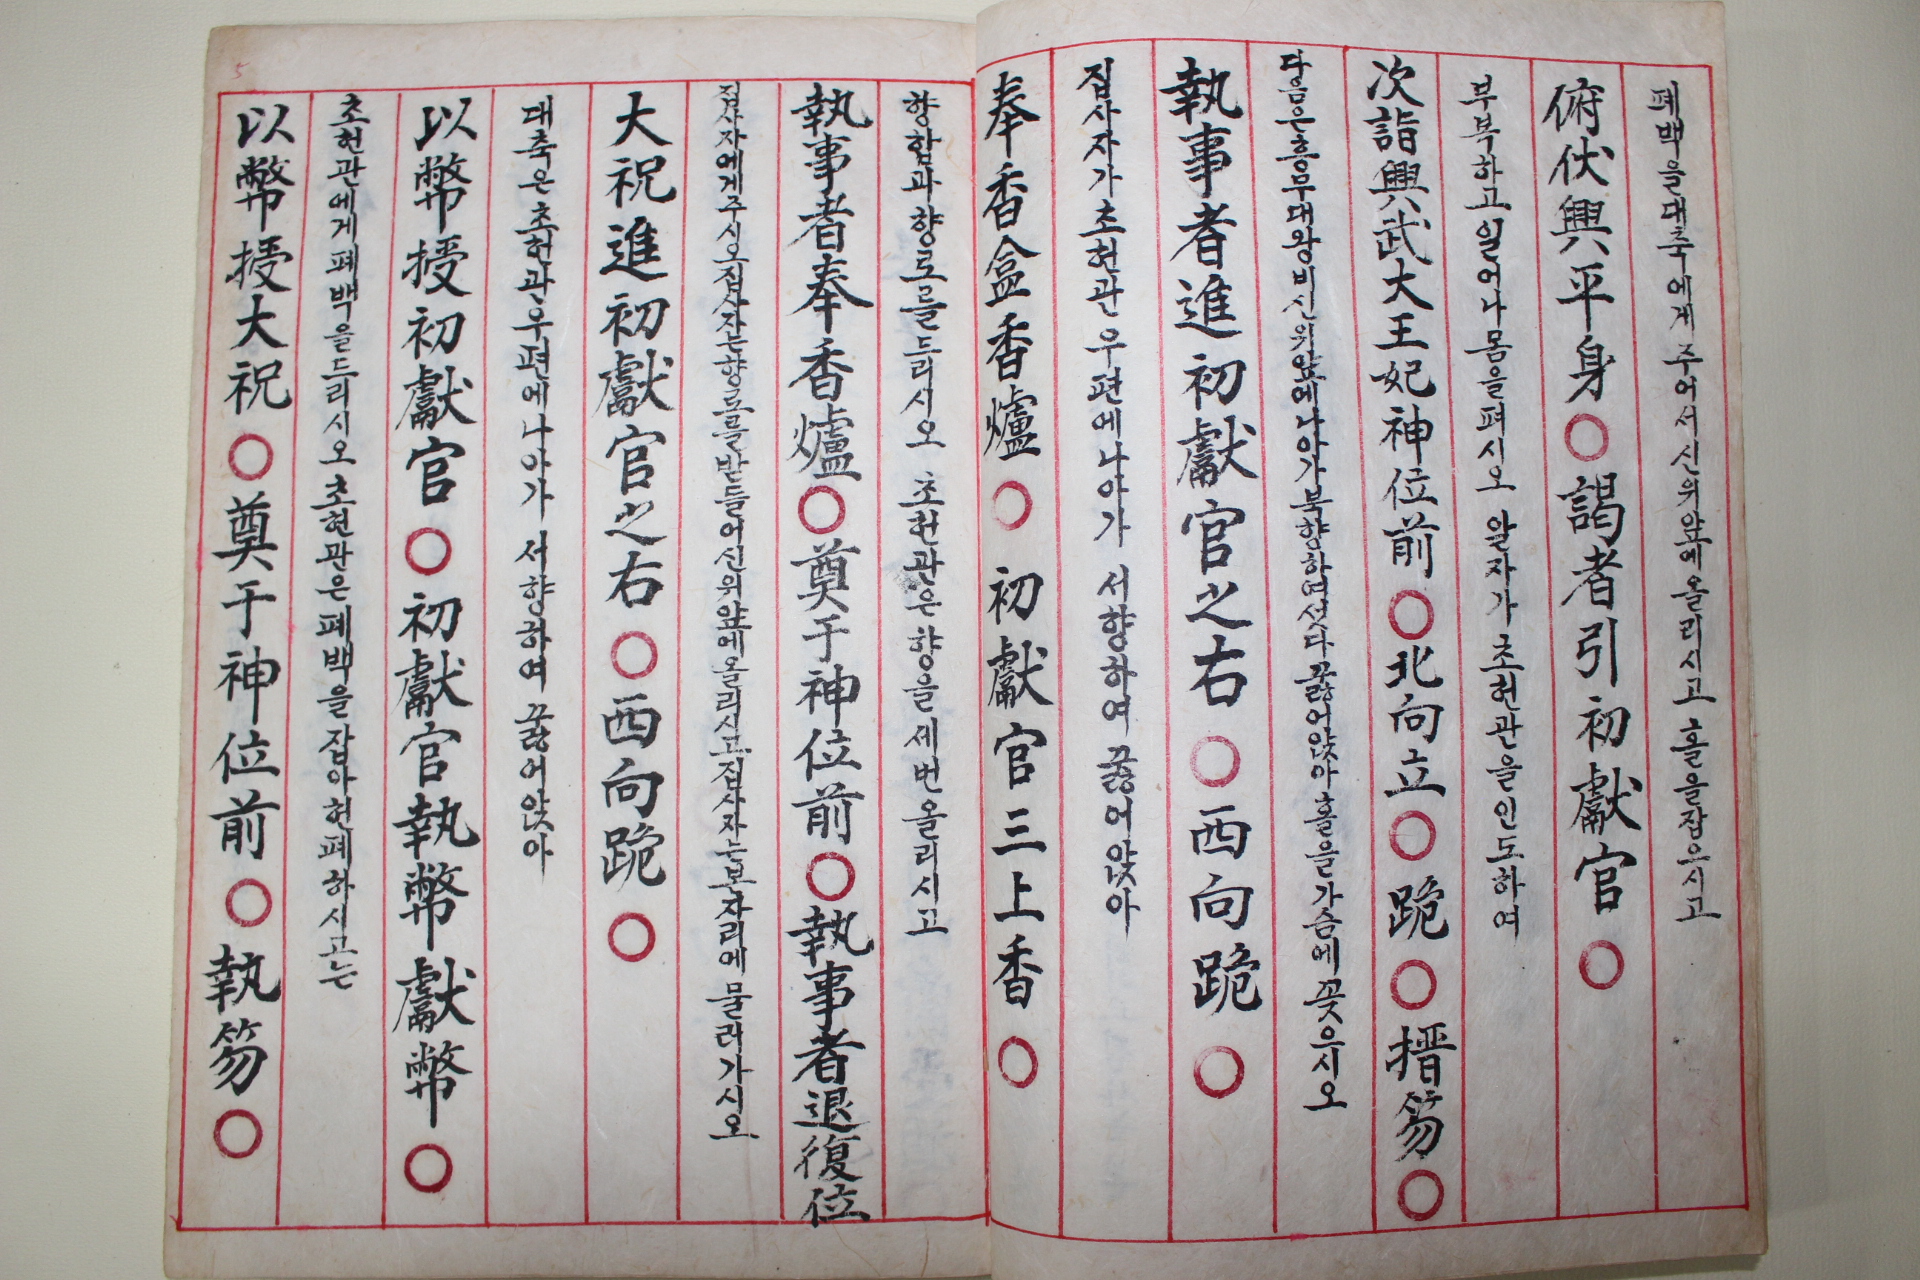 폐백을대축에게 주어서신위앞에올리시고 홀을잡으시고
俯伏興平身○謁者引初獻官○
부복하고일어나 몸을펴시오 알자가 초헌관을인도하여
次詣興武大王妃神位前○北向立○跪○搢笏○
다음은흥무대왕비신위앞에나아가북향하여섯다 꿇어앉아 홀을가슴에 꽂으시오
執事者進初獻官之右○西向跪○
집사자가초헌관 우편에나아가 서향하여 꿇어앉아
奉香盒香爐○初獻官三上香○
향합과향로를드리시오 초헌관은향을세번올리시고
執事者奉香爐○奠于神位前○執事者退復位
집사자에게주시오집사자는향로를받들어신위앞에올리시고집사자는본자리에 물러가시오
大祝進初獻官之右○西向跪○
대축은초헌관우편에나아가 서향하여 꿇어앉아
以幣授初獻官○初獻官執幣獻幣○
초헌관에게폐백을드리시오 초헌관은폐백을잡아헌폐하시고는
以幣授大祝○奠于神位前○執笏○
5